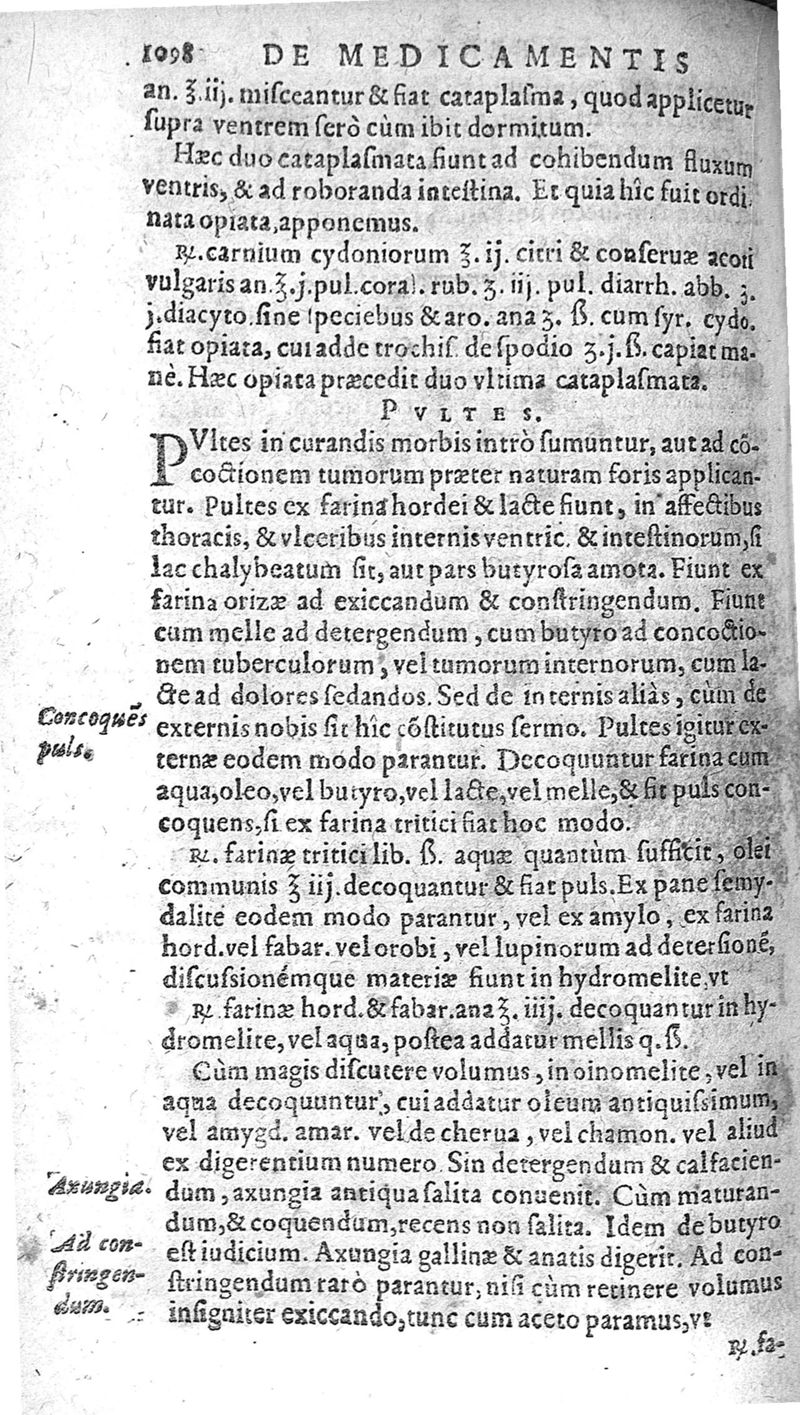 1098 DE MEDICAMENTIS
an. ℥.iij. miſceantur & fiat cataplaſma, quod applicetur
ſupra ventrem ſerò cùm ibit dormitum.
Hæc duo cataplaſmata fiunt ad cohibendum fluxum
ventris, & ad roboranda inteſtina. Et quia hîc fuit ordi
nata opiata, apponemus.
℞. carnium cydoniorum ℥. ij. citri & conſeruæ acori
vulgaris an. ℥.j. pul. coral. rub. ʒ. iij. pul. diarrh. abb. ʒ.
j. diacyto. ſine ſpeciebus & aro. ana ʒ. ß. cum ſyr. cydo.
fiat opiata, cui adde trochiſ. de ſpodio ʒ.j.ß. capiat ma-
nè. Hæc opiata præcedit duo vltima cataplaſmata.
PVLTES.
PVltes in curandis morbis intrò ſumuntur, aut ad cõ-
coctionem tumorum præter naturam foris applican-
tur. Pultes ex farina hordei & lacte fiunt, in affectibus
thoracis, & vlceribus internis ventric. & inteſtinorum, ſi
lac chalybeatum ſit, aut pars butyroſa amota. Fiunt ex
farina orizæ ad exiccandum & conſtringendum. Fiunt
cum melle ad detergendum, cum butyro ad concoctio-
nem tuberculorum, vel tumorum internorum, cum la-
cte ad dolores ſedandos. Sed de internis aliàs, cùm de
Concoquẽs
puls.
externis nobis ſit hîc cõſtitutus ſermo. Pultes igitur ex-
ternæ eodem modo parantur. Decoquuntur farina cum
aqua, oleo, vel butyro, vel lacte, vel melle, & fit puls con-
coquens, ſi ex farina tritici fiat hoc modo.
℞. farinæ tritici lib. ß. aquæ quantùm ſufficit, olei
communis ℥ iij. decoquantur & fiat puls. Ex pane ſemy-
dalite eodem modo parantur, vel ex amylo, ex farina
hord. vel fabar. vel orobi, vel lupinorum ad deterſionẽ,
diſcuſsionémque materiæ fiunt in hydromelite, vt
℞. farinæ hord. & fabar. ana ℥. iiij. decoquantur in hy-
dromelite, vel aqua, poſtea addatur mellis q. ß.
Cùm magis diſcutere volumus, in oinomelite, vel in
aqua decoquuntur, cui addatur oleum antiquiſsimum,
vel amygd. amar. vel de cherua, vel chamom. vel aliud
ex digerentium numero. Sin detergendum & calfacien-
Axungia.
dum, axungia antiqua ſalita conuenit. Cùm maturan-
dum, & coquendum, recens non ſalita. Idem de butyro
Ad con-
ſtringen-
dum.
eſt iudicium. Axungia gallinæ & anatis digerit. Ad con-
ſtringendum rarò parantur, niſi cùm retinere volumus
inſigniter exiccando, tunc cum aceto paramus, vt
℞. fa-